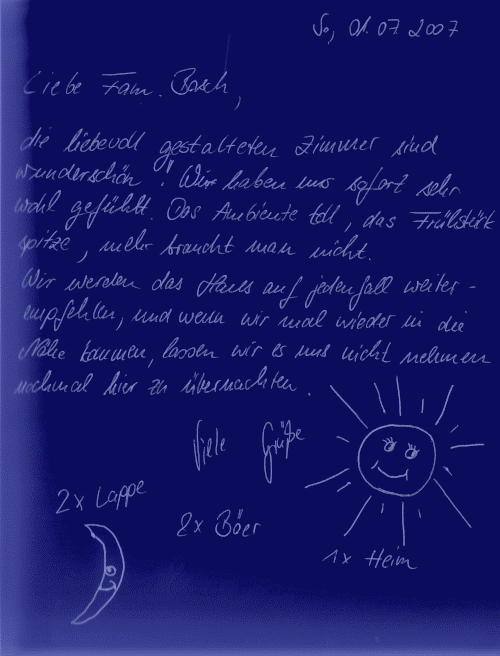 So, 01.07.2007
Liebe Fam. Bosch,
die liebevoll gestalteten Zimmer sind
wunderschön! Wir haben uns sofort sehr
wohl gefühlt. Das Ambiente toll, das Frühstück
spitze, mehr braucht man nicht.
Wir werden das Haus auf jedenfall weiter-
empfehlen, und wenn wir mal wieder in die
Nähe kommen, lassen wir es uns nicht nehmen
nochmal hier zu übernachten.
Viele Grüße
2x Lappe
2x Böer
1x Heim